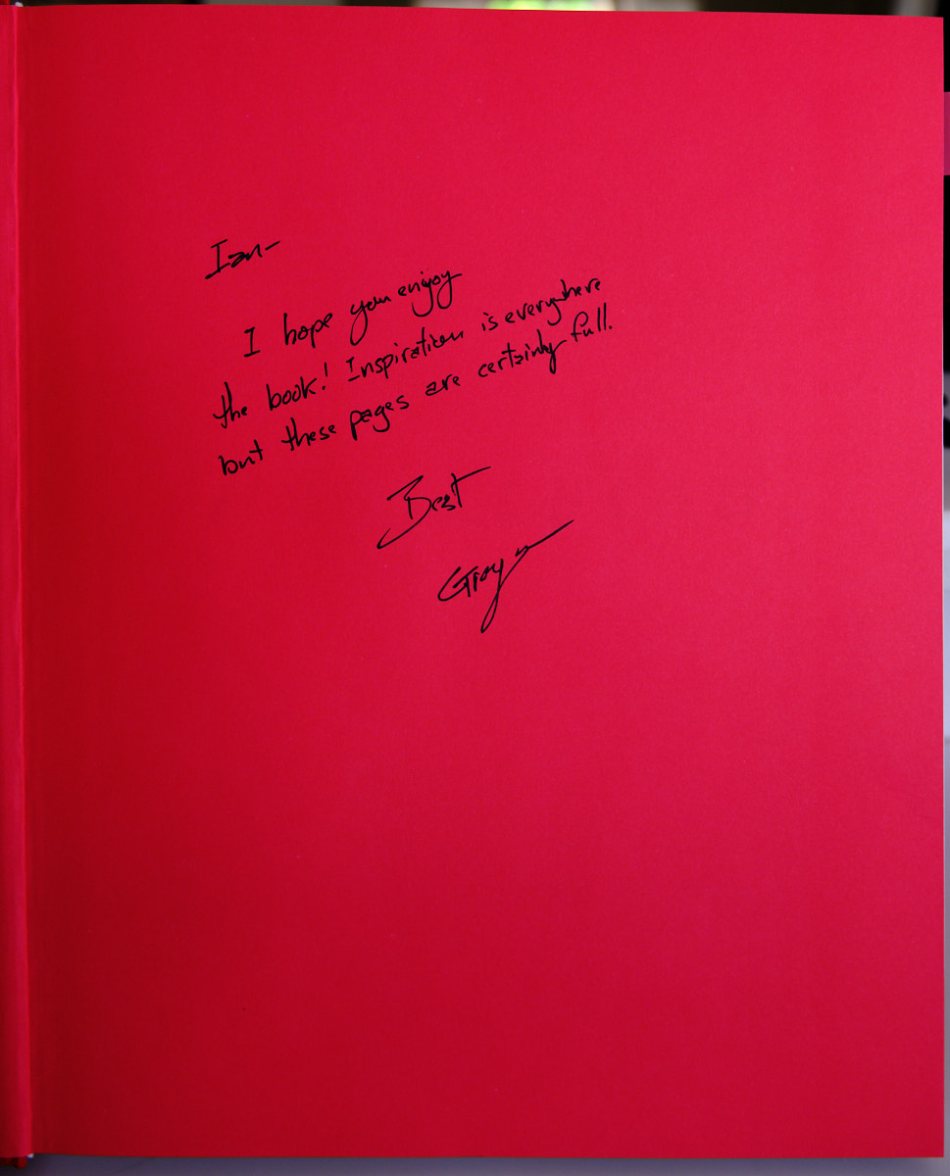 Ian-
I hope you enjoy
the book! Inspiration is everywhere
but these pages are certainly full.
Best